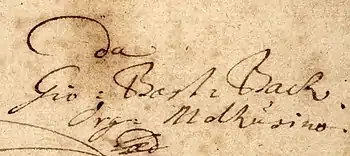 da
Gio: Bast: Bach
Org: Molhusino.